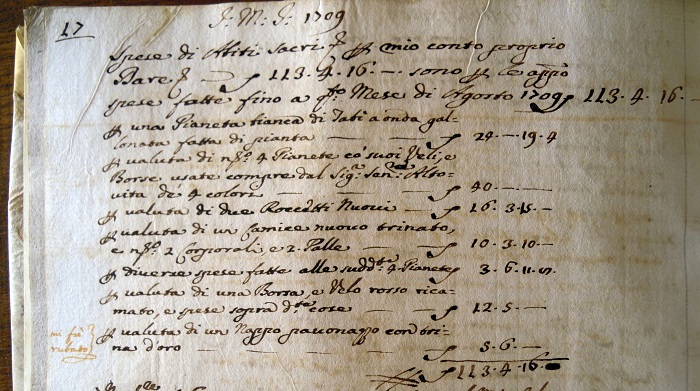 17
J: M: J: 1709
Spese di Abiti sacri p mio conto proprio
Dare — ƒ 113.4.16.— sono p le appo
spese fatte fino a pmo Mese di Agosto 1709 ƒ 113.4.16 —
p una Pianeta bianca di Tabi a onda gal-
lonata fatta di pianta — — ƒ 24.—19.4
p valuta di no. 4 Pianete co' suoi Veli, e
Borse usate compre dal Sigr. Senr. Alto-
vita de 4 colori — — ƒ 40.—.—
p valuta di due Roccetti Nuovi — ƒ 16.3.15.—
p valuta di un Camice nuovo trinato,
e no. 2 Corporali, e 2. Palle — — ƒ 10.3.10.—
p diverse spese fatte alle suddte. 4 Pianete ƒ 3.6.11.
p valuta di una Borsa, e Velo rosso rica-
mato, e spese sopra dte. cose — ƒ 12.5.—
p valuta di un Nappo pavonazzo con tri-
na d'oro — — — ƒ 5.6.—
mi fu
rubato
ƒ 113.4.16.